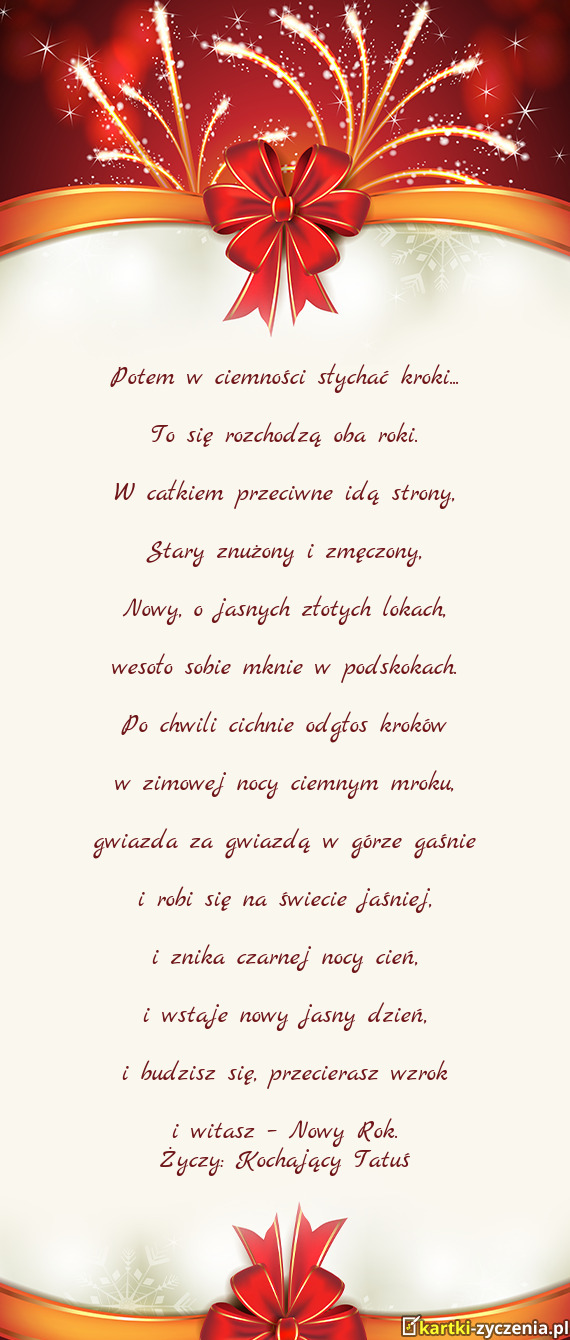 Potem w ciemności słychać kroki...
To się rozchodzą oba roki.
W całkiem przeciwne idą strony,
Stary znużony i zmęczony,
Nowy, o jasnych złotych lokach,
wesoło sobie mknie w podskokach.
Po chwili cichnie odgłos kroków
w zimowej nocy ciemnym mroku,
gwiazda za gwiazdą w górze gaśnie
i robi się na świecie jaśniej,
i znika czarnej nocy cień,
i wstaje nowy jasny dzień,
i budzisz się, przecierasz wzrok
i witasz - Nowy Rok.
Życzy: Kochający Tatuś
kartki-zyczenia.pl